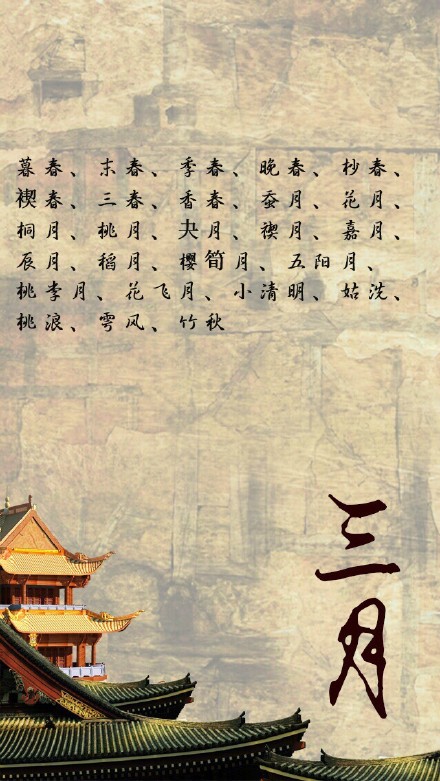 暮春、末春、季春、晚春、杪春、
禊春、三春、香春、蚕月、花月、
桐月、桃月、夬月、禊月、嘉月、
辰月、稻月、樱筍月、五阳月、
桃李月、花飞月、小清明、姑洗、
桃浪、雩风、竹秋
三月